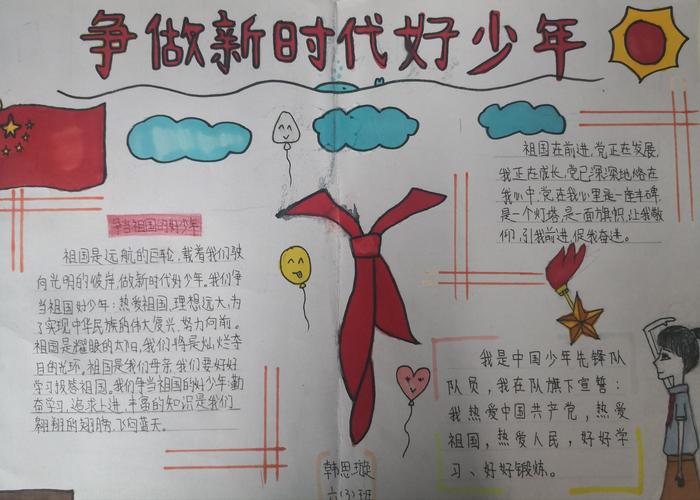 争做新时代好少年
争当祖国的好少年
祖国是远航的巨轮，载着我们驶
向光明的彼岸。做新时代好少年。我们争
当祖国好少年：热爱祖国，理想远大，为
了实现中华民族的伟大复兴，努力向前。
祖国是耀眼的太阳，我们将是灿烂夺
目的光环。祖国是我们母亲，我们要好好
学习报答祖国。我们争当祖国的好少年：勤
奋学习，追求上进，丰富的知识是我们
翱翔的翅膀，飞向蓝天。
祖国在前进，党正在发展，
我正在成长，党已深深地烙在
我心中，党在我心里是一座丰碑，
是一个灯塔，是一面旗帜，让我敬
仰，引我前进，促我奋进。
我是中国少年先锋队
队员，我在队旗下宣誓：
我热爱中国共产党，热爱
祖国，热爱人民，好好学
习、好好锻炼。
韩思璇
六(3)班